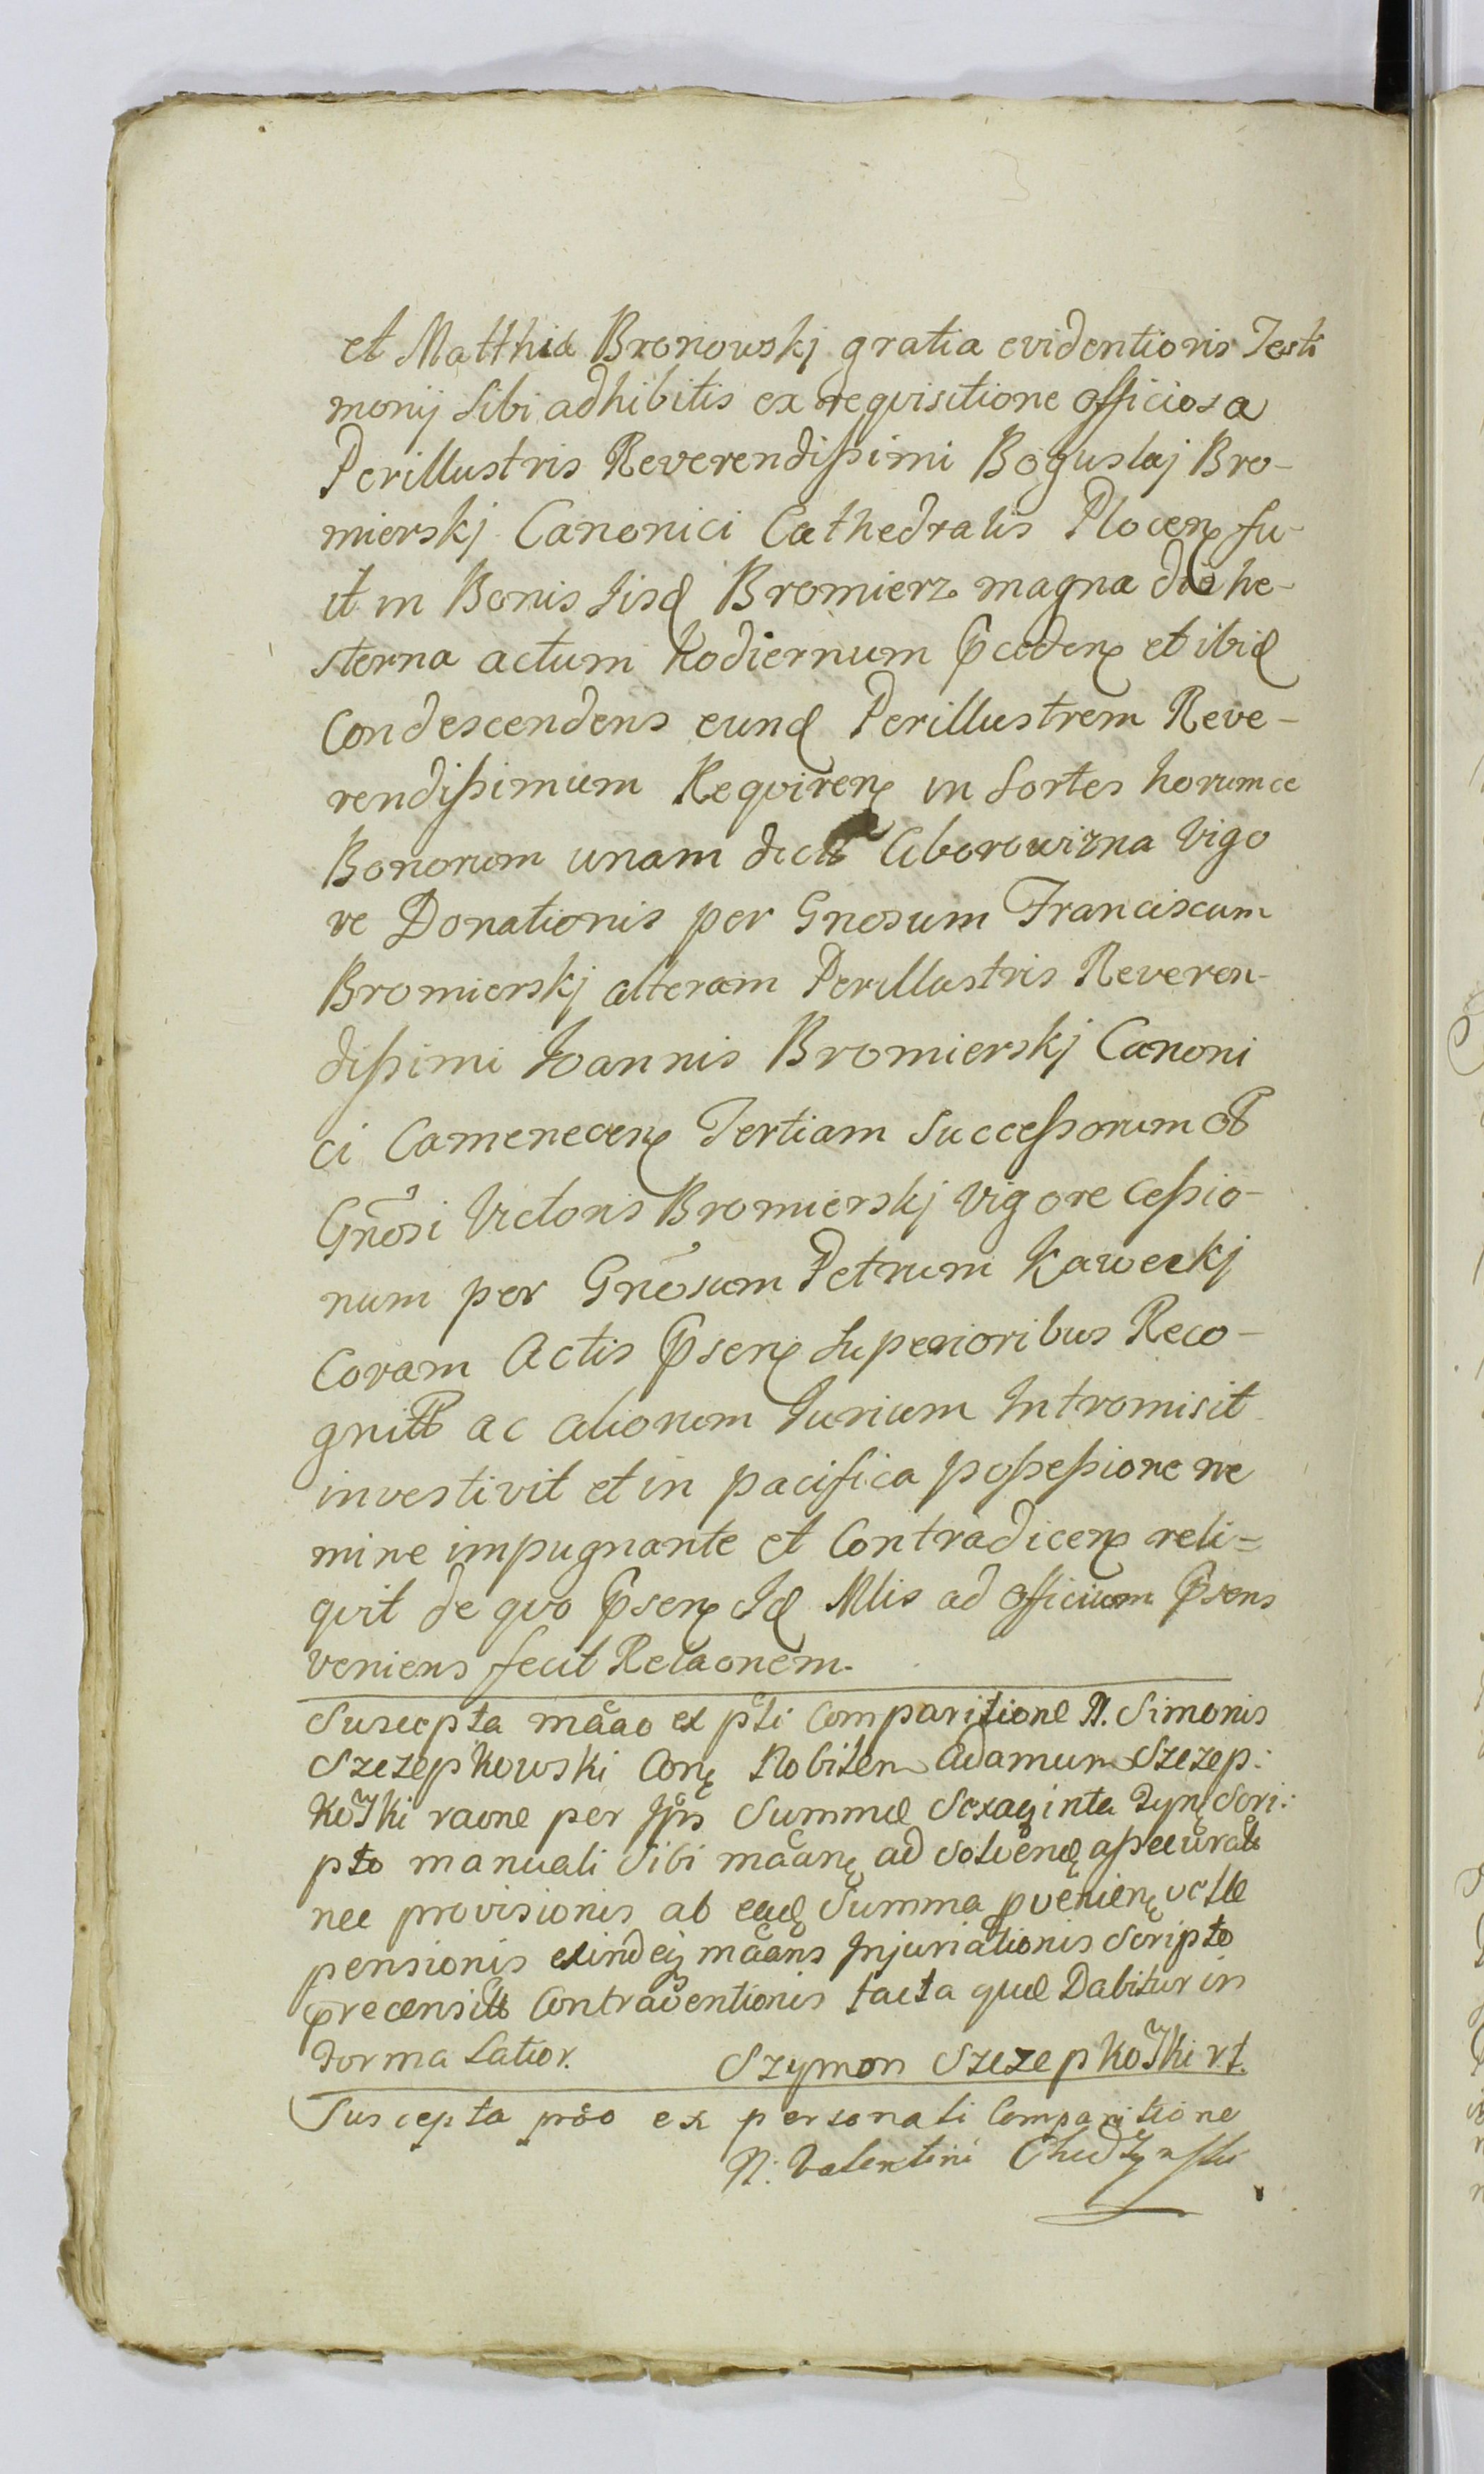 et Matthia Bronowskj gratia evidentioris Testi
monij Sibi adhibitis ex requisitione officiosa
Perillustris Reverendißimi Boguslaj Bro-
mierskj Canonici Cathedralis Plocen fu-
it in Bonis Iisd Bromierz magna die he-
sterna actum hodiernum pcedeń et ibid
Condescendens eund Perillustrem Reve-
rendißimum Requiren in Sortes horumce
Bonorum unam Ciborowizna Vigo
re Donationis per Gnosum Franciscum
Bromierskj alteram Perillustris Reveren-
dißimi Ioannis Bromierskj Canoni
ci Camenecen Tertiam Succeßorum
Gnosi Victoris Bromierskj Vigore Ceßio-
num per Gnosum Petrum Kaweckj
Coram Actis psen Superioribus Reco-
gnitt ac aliorum Iurium Intromisit
investivit et in pacifica poßeßione ne
mine impugnante et Contradicen reli=
quit de quo psen Id Mlis ad officium psens
veniens fecit Relaonem.
Suscepta maao ex pti Comparitione N. Simonis
Szczepkowski Con Nobilem Adamum Szczep:
koski raone per Ips Summæ Sexaginta Tyn Scri:
pto manuali Sibi maan ad Solvend aßecuratt
nec provisionis ab ead Summa pvenien
pensionis exindeq maans Injuriationis Scripto
precensitt Contraventionis facta quæ Dabitur in
Forma Latior. Szymon Szczepkoski
Suscepta pro ex personali Comparitione
N: Valentini